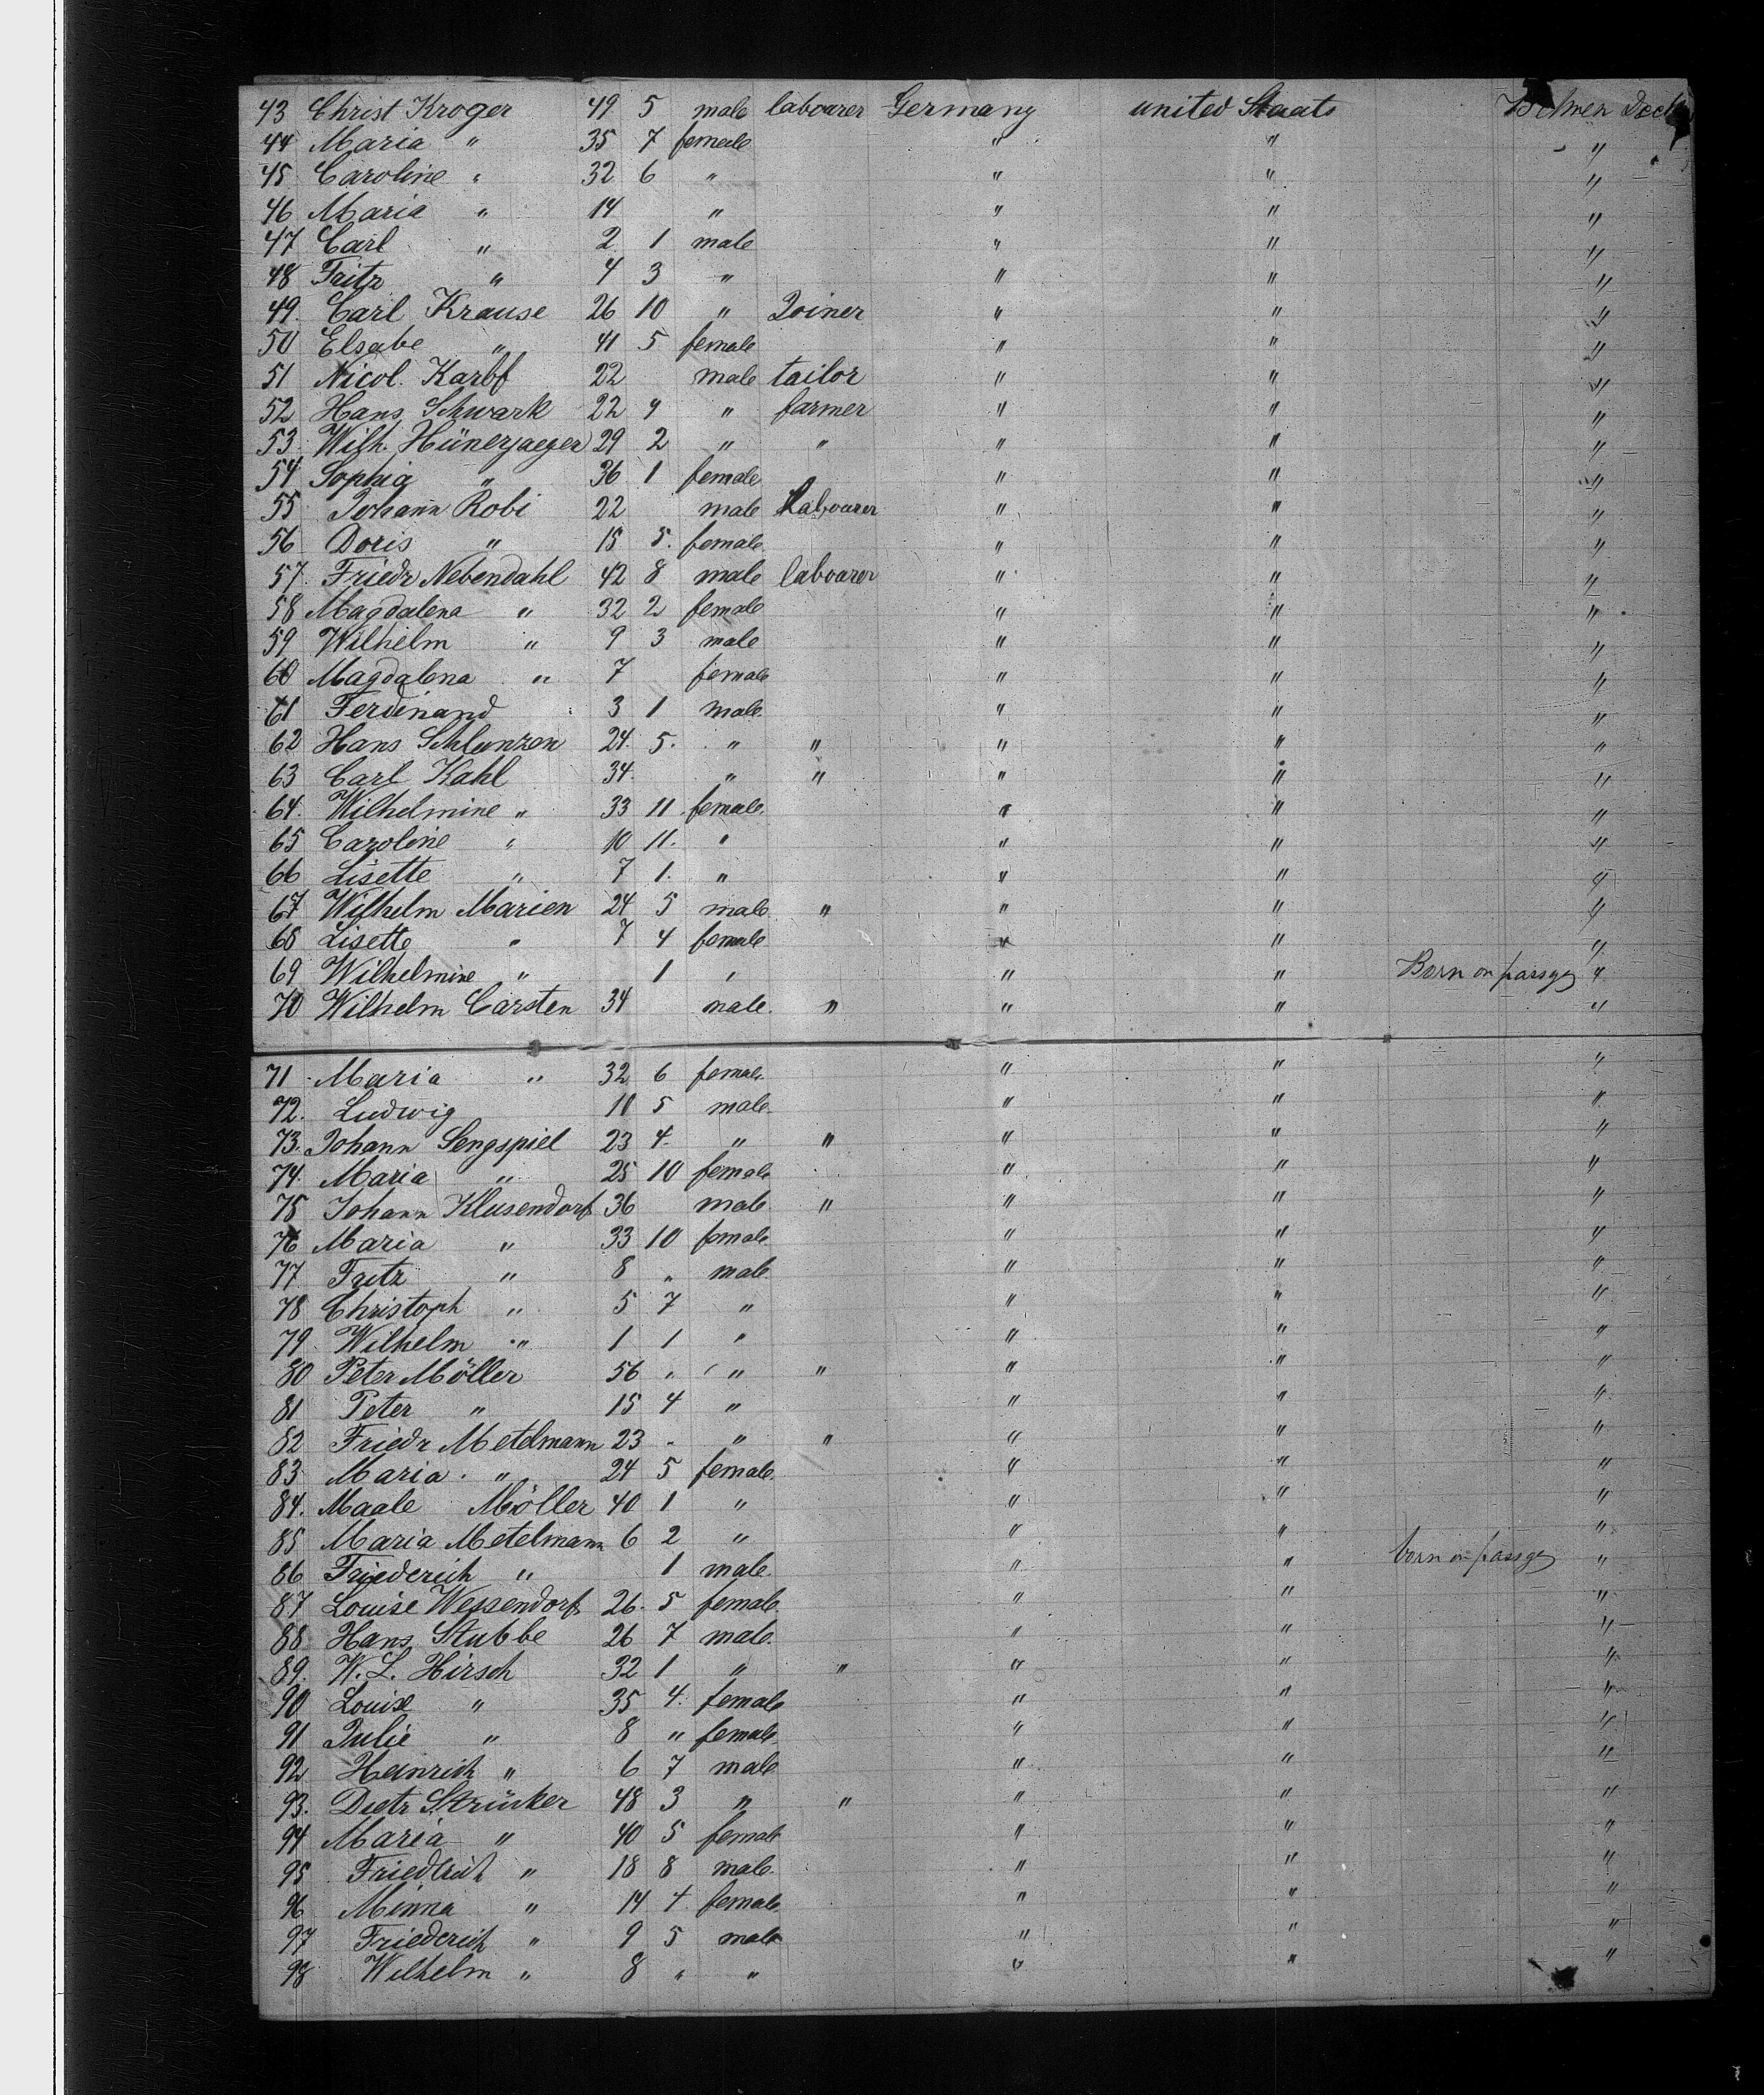 43 Christ Kroger 49 5 male labourer Germany united Staats Zwichen Deck
44 Maria " 35 7 female " " "
45 Caroline " 32 6 " " " "
46 Maria " 14 " " " "
47 Carl " 2 1 male " " "
48 Fritz " 4 3 " " " "
49. Carl Krause 26 10 " Joiner " " "
50 Elsabe " 41 5 female " " "
51 Nicol. Karbf 22 male tailor " " "
52 Hans Schwark 22 9 " farmer " " "
53 Wilh. Hünerjaeger 29 2 " " " " "
54 Sophia " 36 1 female " " "
55 Johann Robi 22 male Labourer " " "
56 Doris " 15 5. female " " "
57. Friedr Nebendahl 42 8 male labourer " " "
58 Magdalena " 32 2 female " " "
59 Wilhelm " 9 3 male " " "
60 Magdalena " 7 female " " "
61 Ferdinand 3 1 male. " " "
62 Hans Schlunzen 24. 5. " " " " "
63 Carl Kahl 34. " " " " "
64. Wilhelmine " 33 11. female. " " "
65 Caroline " 10 11. " " " "
66 Lisette " 7 1. " " " "
67 Wilhelm Marien 24 5 male " " " "
68 Lisette " 7 4 female " " "
69 Wilhelmine " 1 " " " Born on passge "
70 Wilhelm Carsten 34 male. " " " "
71 Maria " 32 6 female. " " "
72. Ludwig 10 5 male. " " "
73. Johann Sengspiel 23 4. " " " " "
74. Maria " 25 10 female " " "
75 Johann Klusendorf 36 male. " " " "
76 Maria " 33 10 female " " "
77 Fritz " 8 " male. " " "
78 Christoph " 5 7 " " " "
79. Wilhelm " 1 1 " " " "
80 Peter Möller 56 " " " " " "
81 Peter " 15 4 " " " "
82 Friedr Metelmann 23 - " " " " "
83 Maria. " 24 5 female. " " "
84. Maale Möller 40 1 " " " "
85 Maria Metelmann 6 2 " " " "
86 Friederich " 1 male. " " born on passge "
87 Louise Wessendorf 26. 5 female. " " "
88 Hans Stubbe 26 7 male. " " "
89. W. L. Hirsch 32 1 " " " " "
90 Louise " 35 4. female " " "
91 Julie " 8 " female. " " "
92 Heinrich " 6 7 male " " "
93. Dietr Strücker 48 3 " " " " "
94 Maria " 40 5 female " " "
95 Friedrich " 18 8 male. " " "
96 Minna " 14 4 female. " " "
97 Friederich " 9 5 male " " "
98 Wilhelm " 8 " " " " "